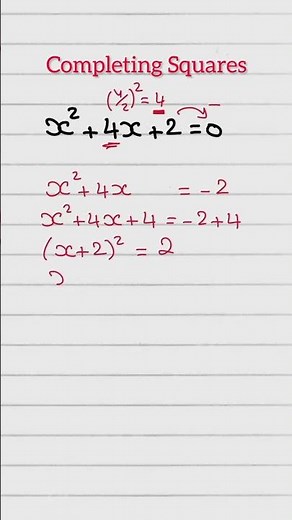 Completing Squares
(4/2)² = 4 −
x² + 4x + 2 = 0
x² + 4x = −2
x² + 4x + 4 = −2 + 4
(x + 2)² = 2